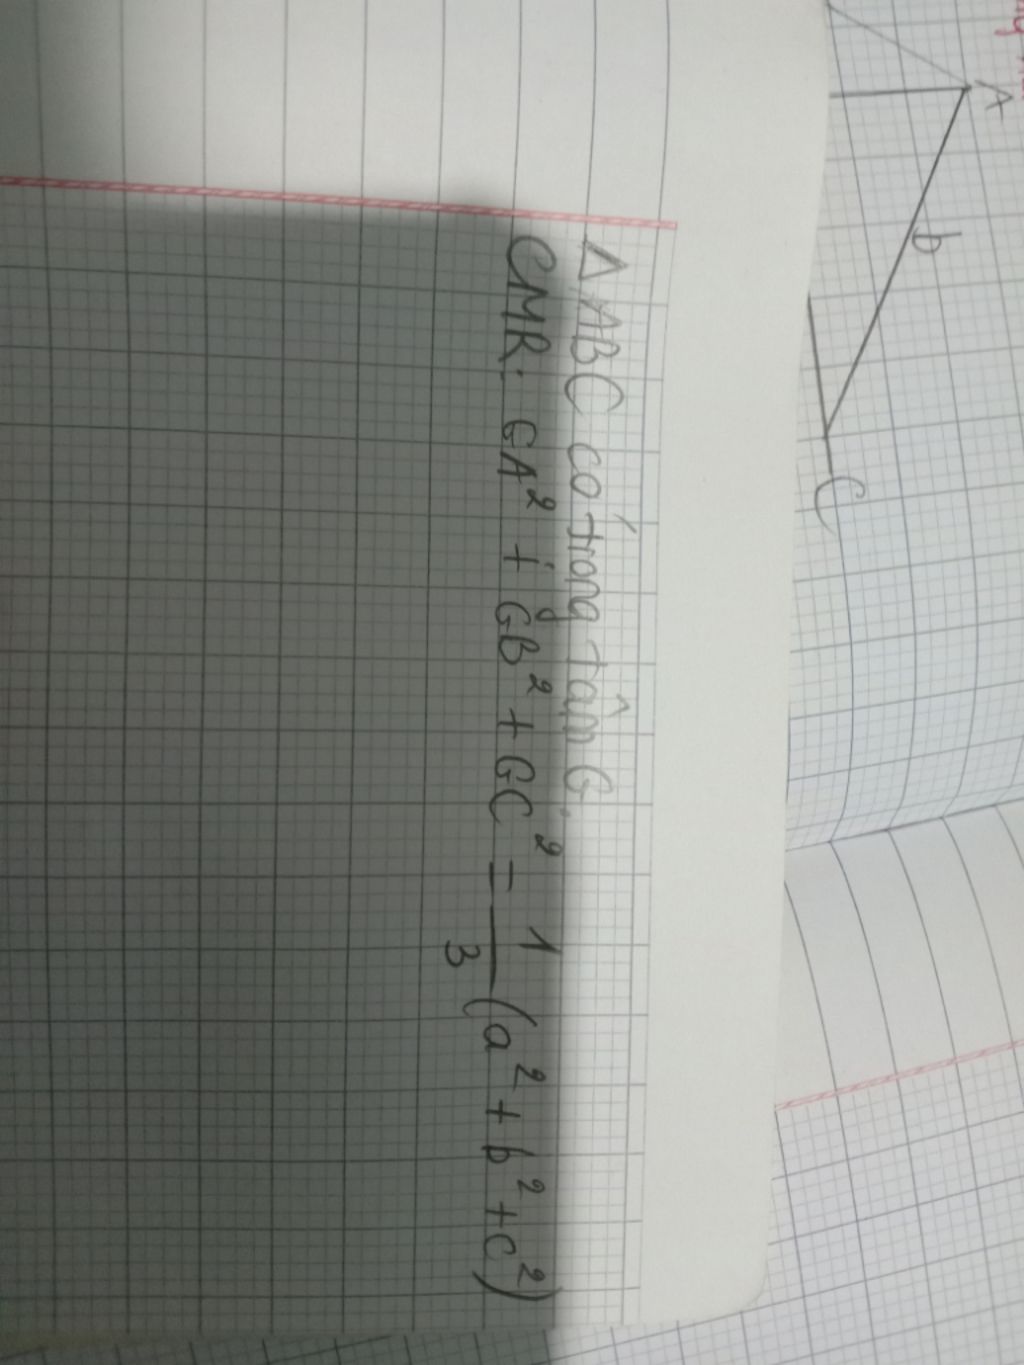 A
b
C
Δ ABC có trọng tâm G.
CMR: GA² + GB² + GC² = 1/3 (a² + b² + c²)